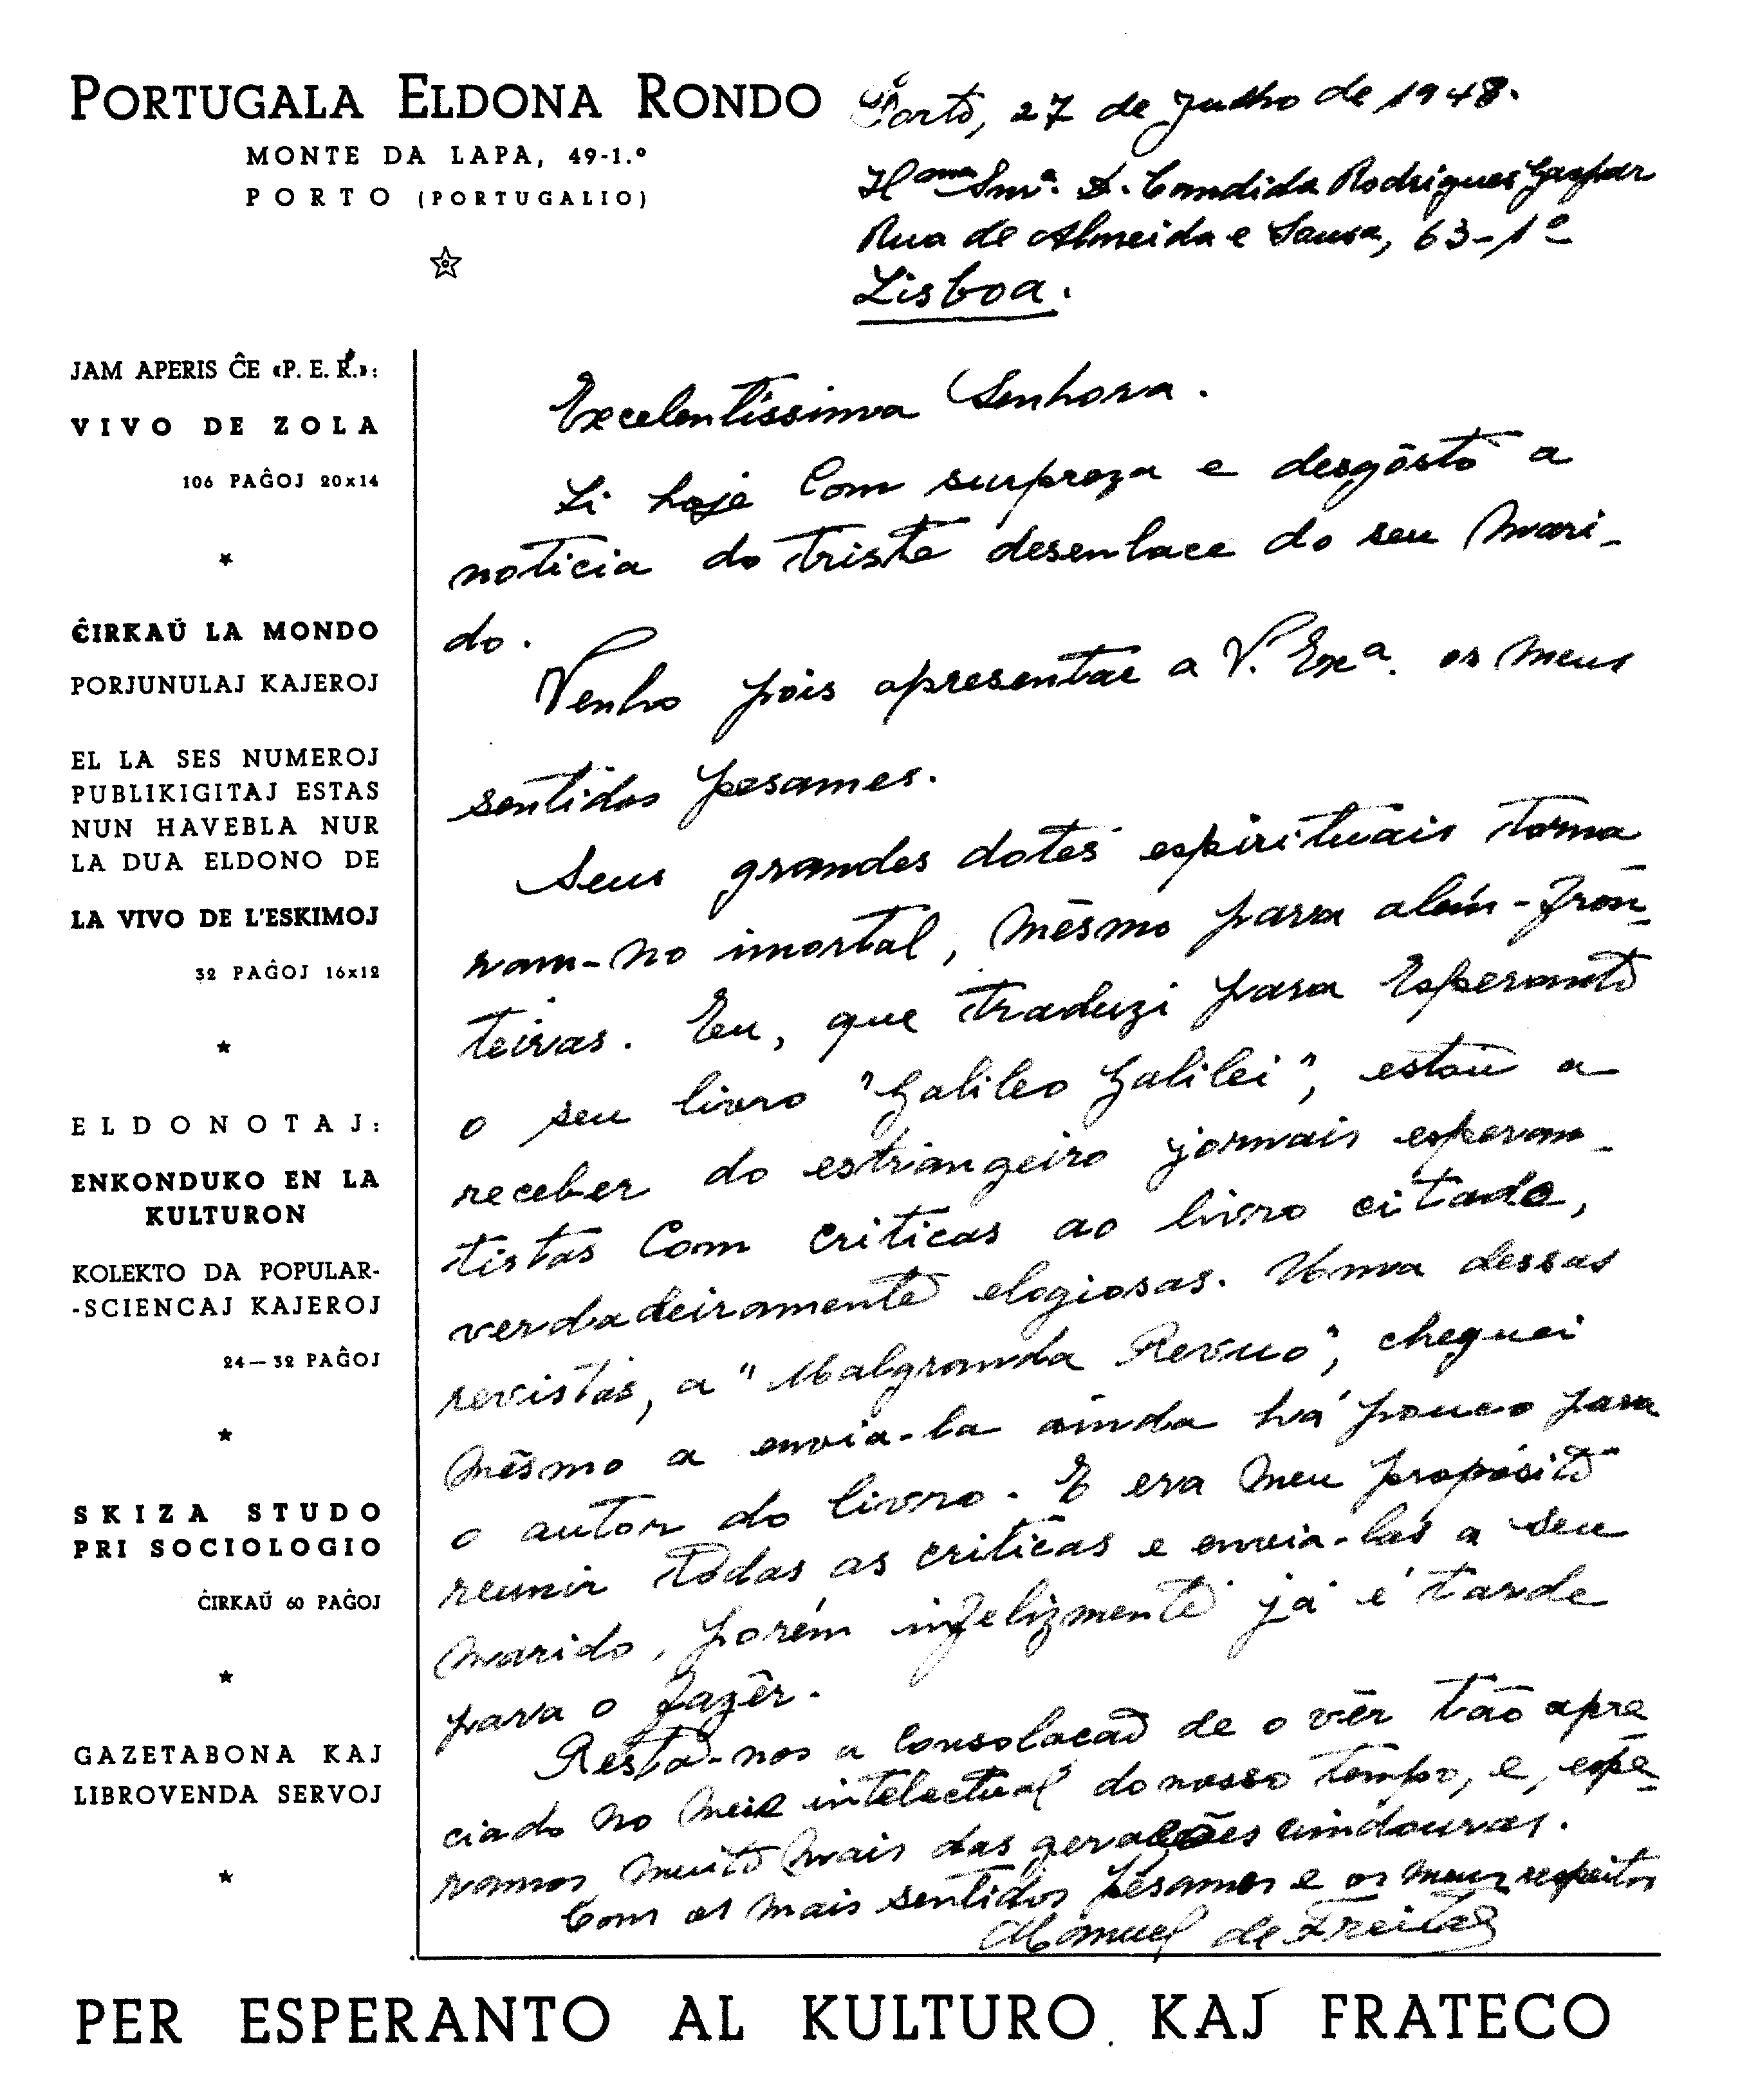 PORTUGALA ELDONA RONDO
MONTE DA LAPA, 49-1.º
PORTO (PORTUGALIO)
Porto, 27 de Julho de 1948.
Ilma Snra. D. Candida Rodrigues Gaspar
Rua de Almeida e Sousa, 63-1º
Lisboa.
JAM APERIS ĈE «P. E. R.»:
VIVO DE ZOLA
106 PAĜOJ 20x14
★
ĈIRKAŬ LA MONDO
PORJUNULAJ KAJEROJ
EL LA SES NUMEROJ
PUBLIKIGITAJ ESTAS
NUN HAVEBLA NUR
LA DUA ELDONO DE
LA VIVO DE L'ESKIMOJ
32 PAĜOJ 16x12
★
ELDONOTAJ:
ENKONDUKO EN LA
KULTURON
KOLEKTO DA POPULAR-
-SCIENCAJ KAJEROJ
24—32 PAĜOJ
★
SKIZA STUDO
PRI SOCIOLOGIO
ĈIRKAŬ 60 PAĜOJ
★
GAZETABONA KAJ
LIBROVENDA SERVOJ
★
Excelentissima Senhora.
Li hoje com surpreza e desgôsto a
noticia do triste desenlace do seu mari-
do.
Venho pois apresentar a V. Exª. os meus
sentidos pesames.
Seus grandes dotes espirituais torna-
ram-no imortal, mêsmo para além-fron-
teiras. Eu, que traduzi para Esperanto
o seu livro "Galileo Galilei", estou a
receber do estrangeiro jornais esperan-
tistas com criticas ao livro citado,
verdadeiramente elogiosas. Uma dessas
revistas, a "Malgranda Revuo", cheguei
mêsmo a envia-la ainda há pouco para
o autor do livro. E era meu propósito
reunir tôdas as criticas e envia-las a seu
marido, porém infelizmente já é tarde
para o fazêr.
Resta-nos a consolação de o vêr tão apre-
ciado no meio intelectual do nosso tempo, e, espe-
ramos, muito mais das gerações vindouras.
Com os mais sentidos pêsames e os meus respeitos
Manuel de Freitas
PER ESPERANTO AL KULTURO KAJ FRATECO